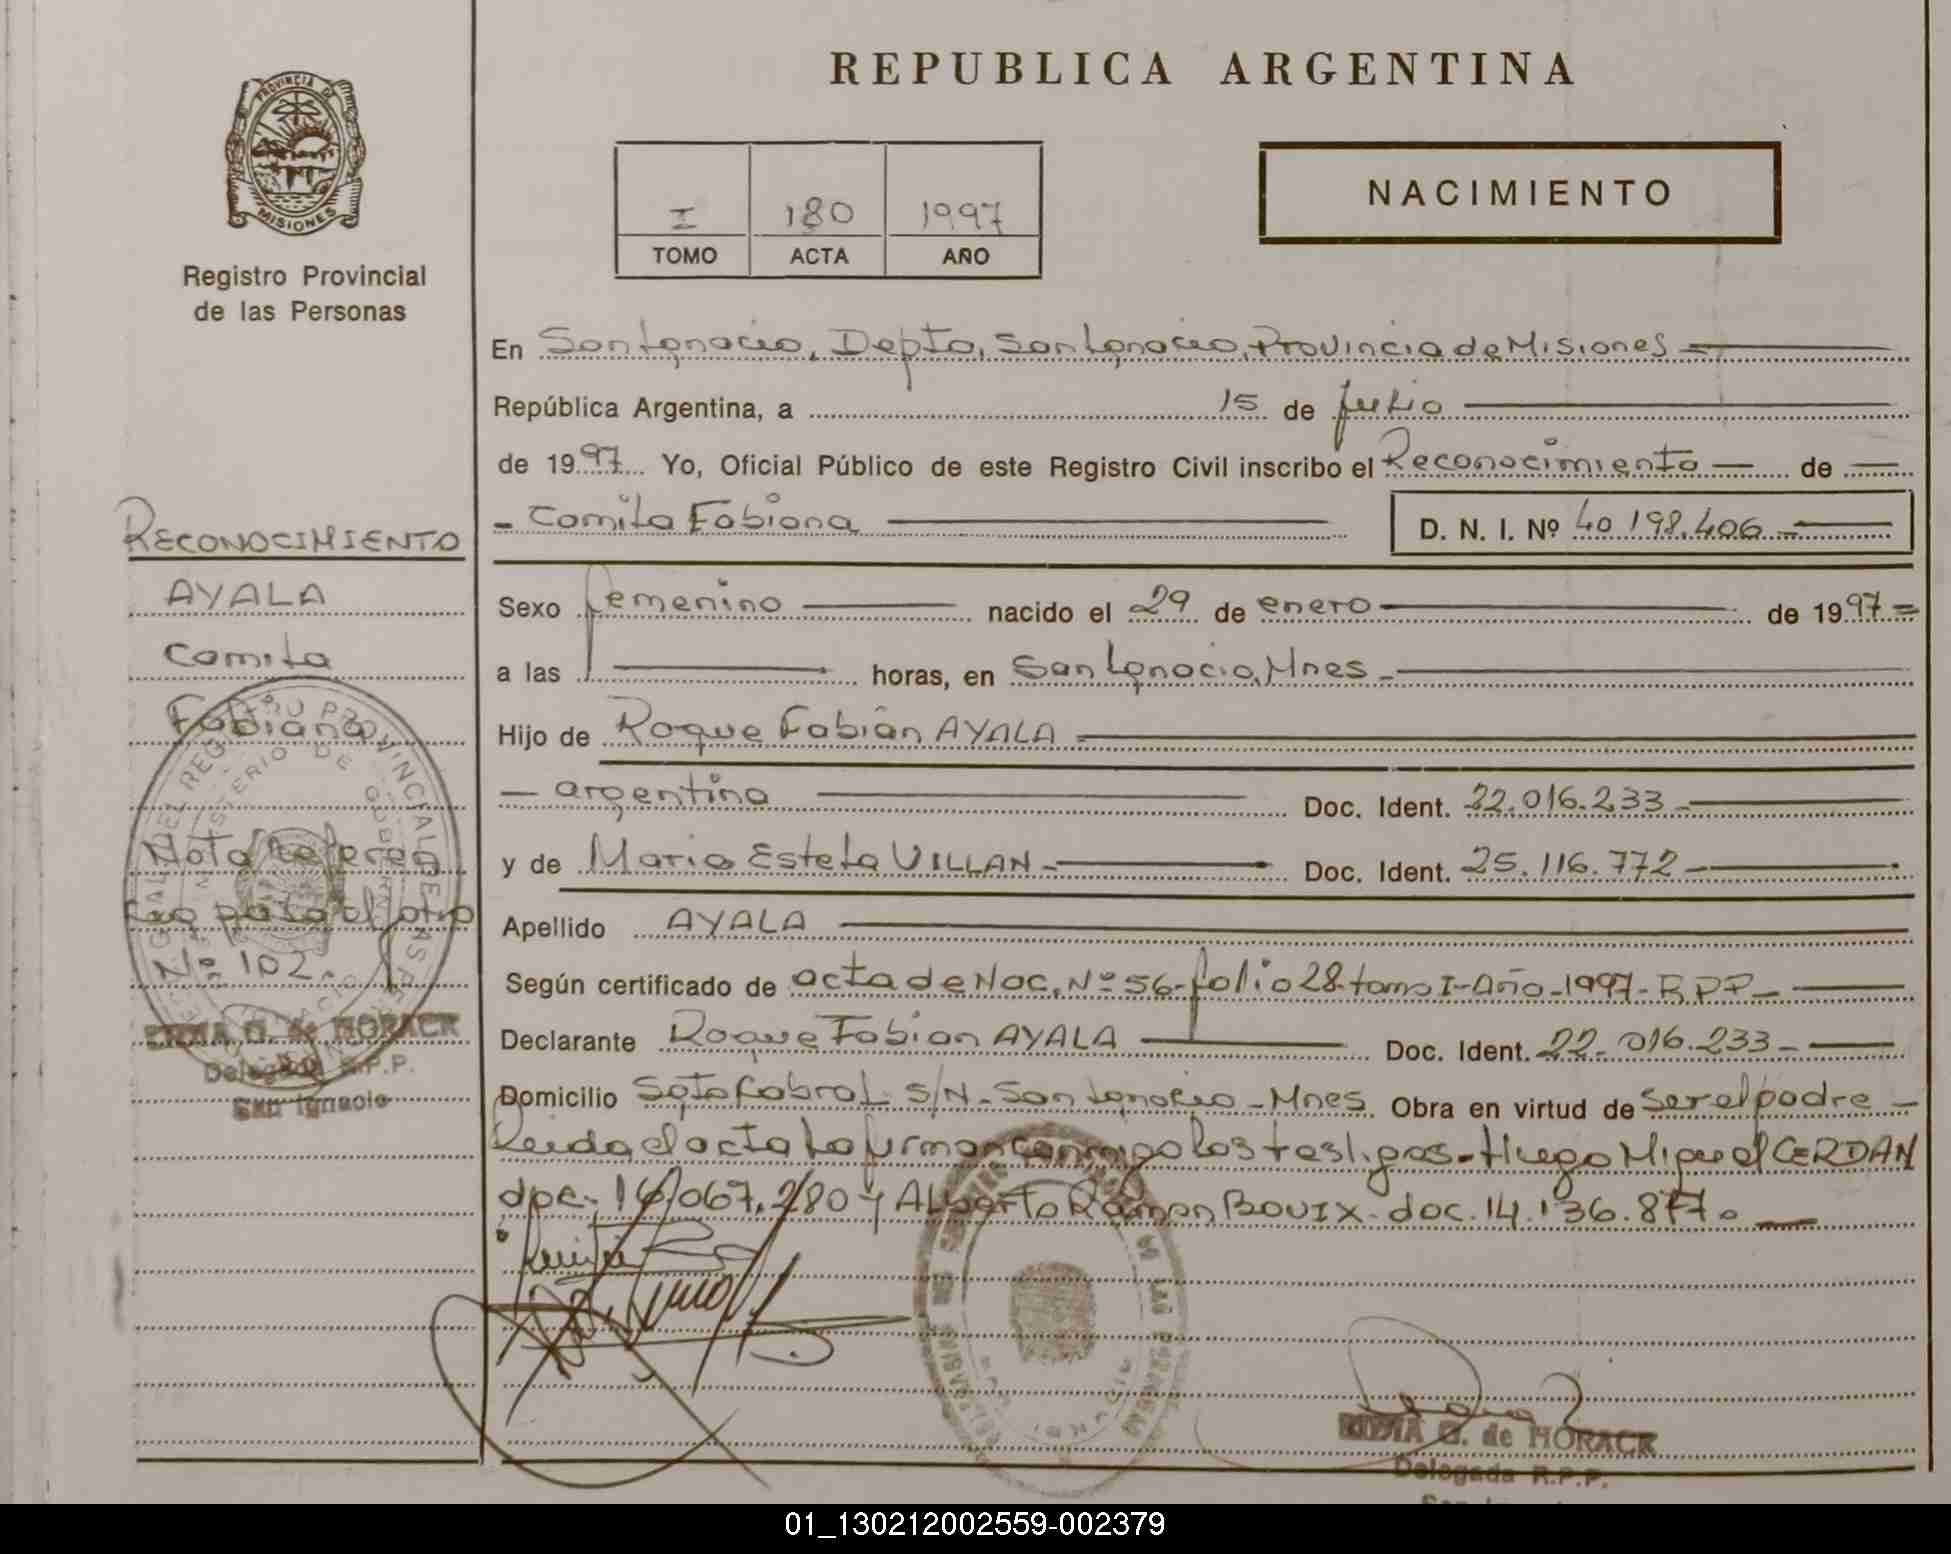 PROVINCIA DE
MISIONES
Registro Provincial
de las Personas
REPUBLICA ARGENTINA
I 180 1997
TOMO ACTA AÑO
NACIMIENTO
En San Ignacio, Depto, San Ignacio, Provincia de Misiones
República Argentina, a 15 de Julio
de 1997 Yo, Oficial Público de este Registro Civil inscribo el Reconocimiento — de —
- Camila Fabiana D. N. I. Nº 40.198.406.-
Sexo femenino nacido el 29 de enero de 1997 =
a las horas, en San Ignacio, Mnes.-
Hijo de Roque Fabián AYALA
— argentina Doc. Ident. 22.016.233.-
y de Maria Estela VILLAN.- Doc. Ident. 25.116.772.-
Apellido AYALA
Según certificado de acta de Nac. Nº 56-folio 28-tomo I-Año-1997-R.P.P.-
Declarante Roque Fabian AYALA Doc. Ident. 22.016.233.-
Domicilio Soto Cabral S/N.- San Ignacio - Mnes. Obra en virtud de ser el padre -
Leida el acta la firman conmigo los testigos.- Hugo Miguel CERDAN
doc. 14.067.280 y Alberto Ramon BOUIX. doc. 14.136.877. —
RECONOCIMIENTO
AYALA
Camila
Fabiana
Nota Referen
cia pasa al folio
Nº 102.
G. de HORACK
Delegada R.P.P.
San Ignacio
G. de HORACK
Delegada R.P.P.
01_130212002559-002379